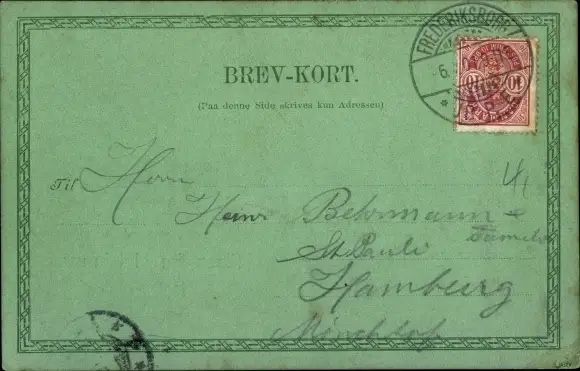 FREDERIKSBORG
BREV-KORT.
(Paa denne Side skrives kun Adressen)
10 10
Til Herrn
Heinr Behrmann
Familie
St. Pauli
Hamburg